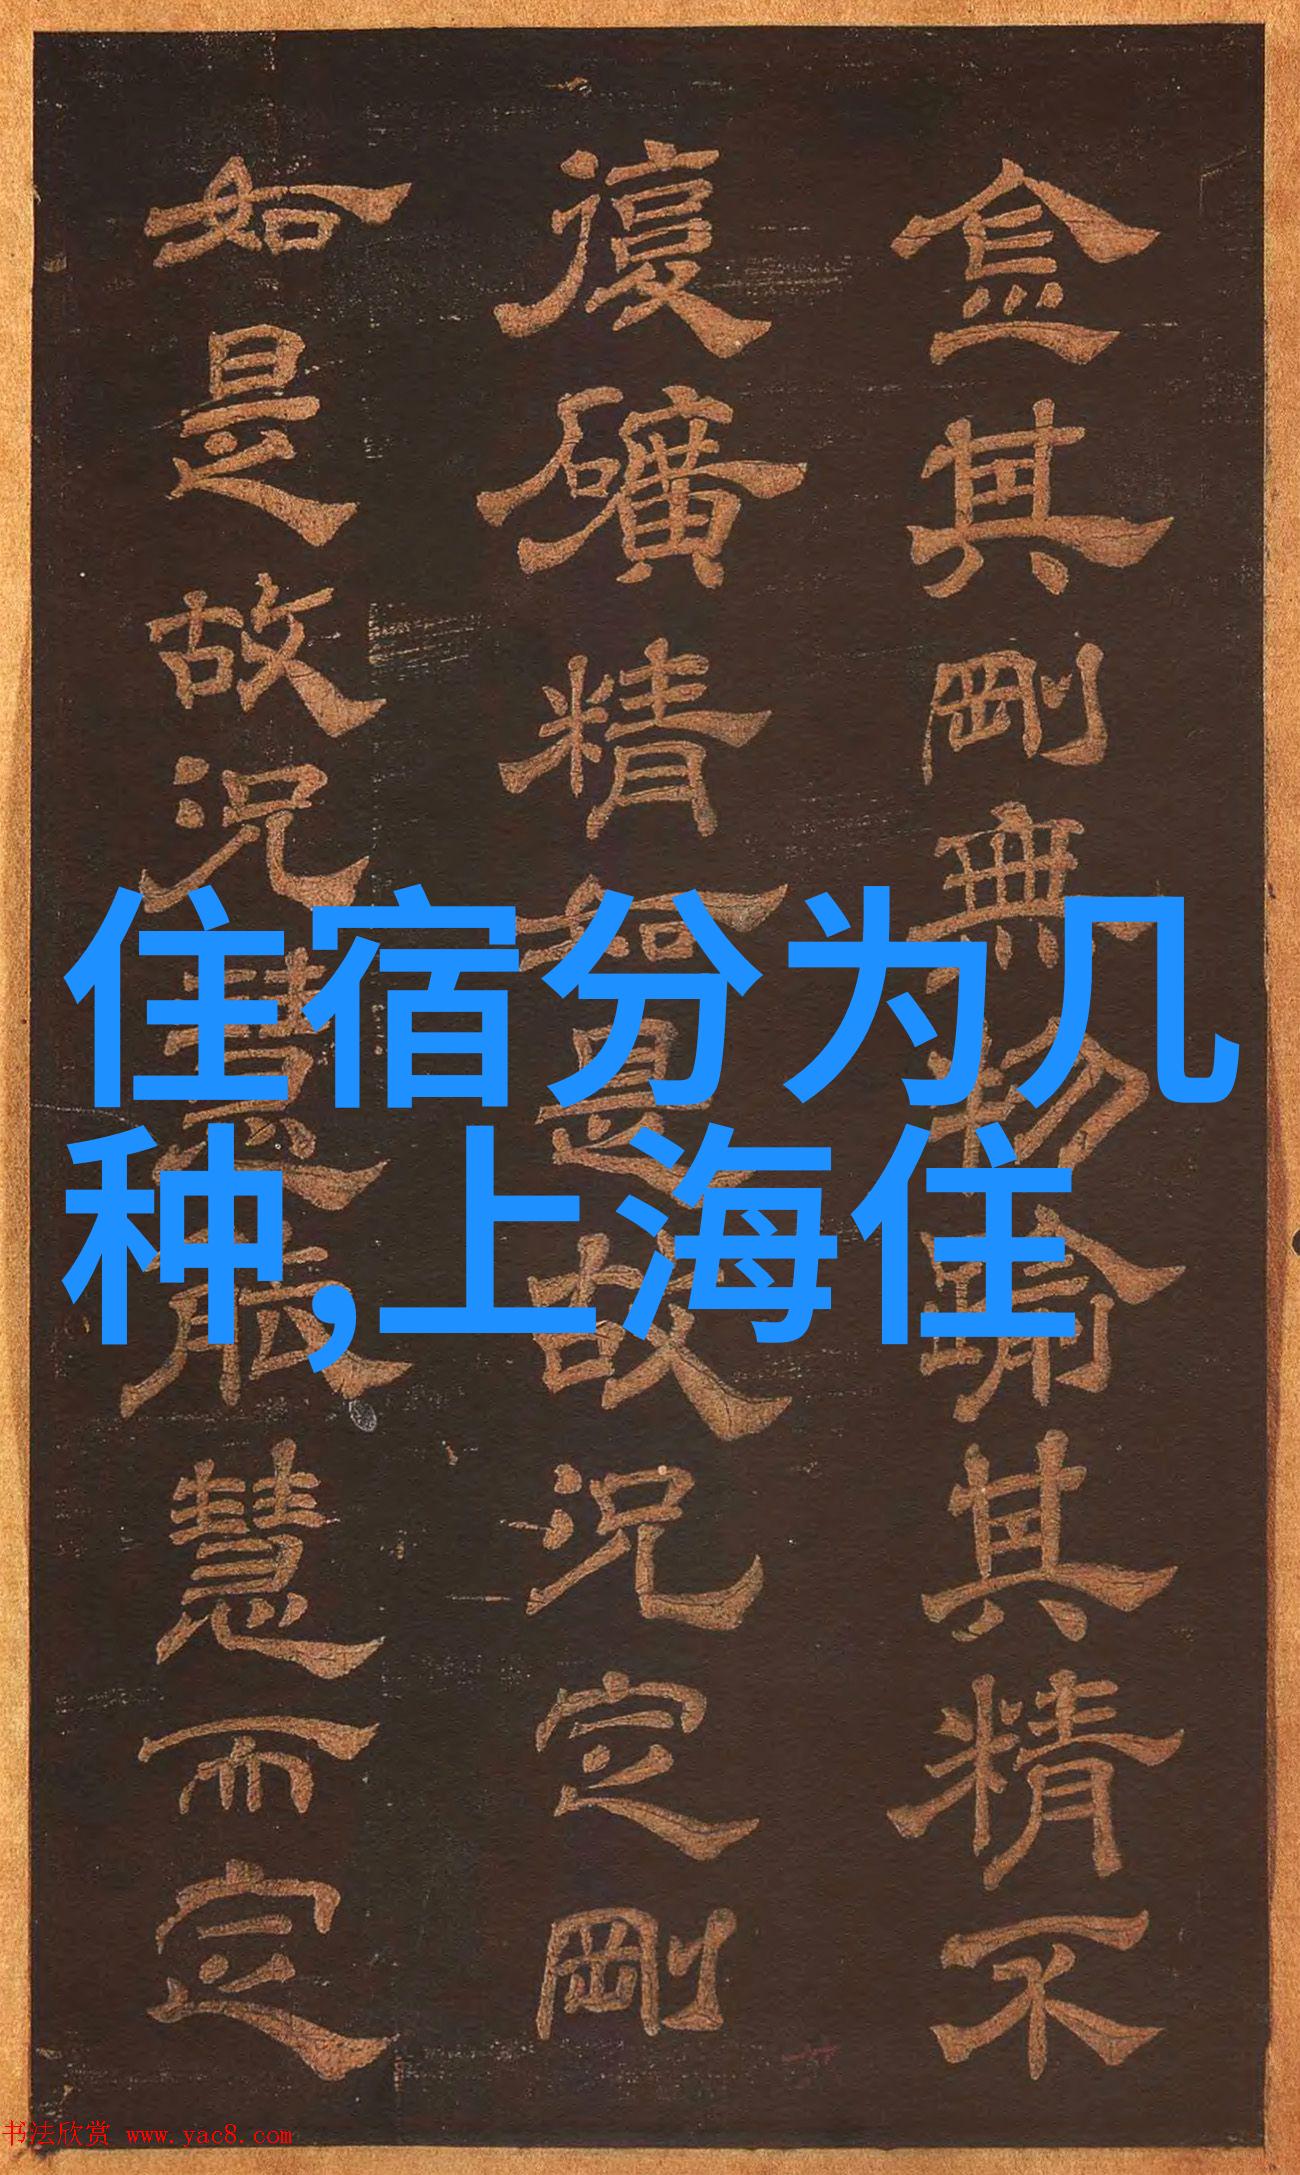 金其剛無物踰其精不
復礦精如是故況定剛
如是故況慧慧而定
住宿分为几
种,上海住
书法欣赏 www.yac8.com